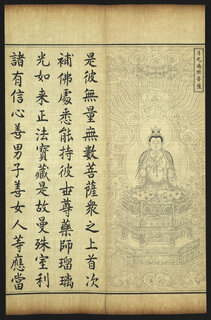 月光遍照菩薩
是彼無量無數菩薩衆之上首次
補佛處悉能持彼世尊藥師瑠璃
光如来正法寶藏是故曼殊室利
諸有信心善男子善女人等應當